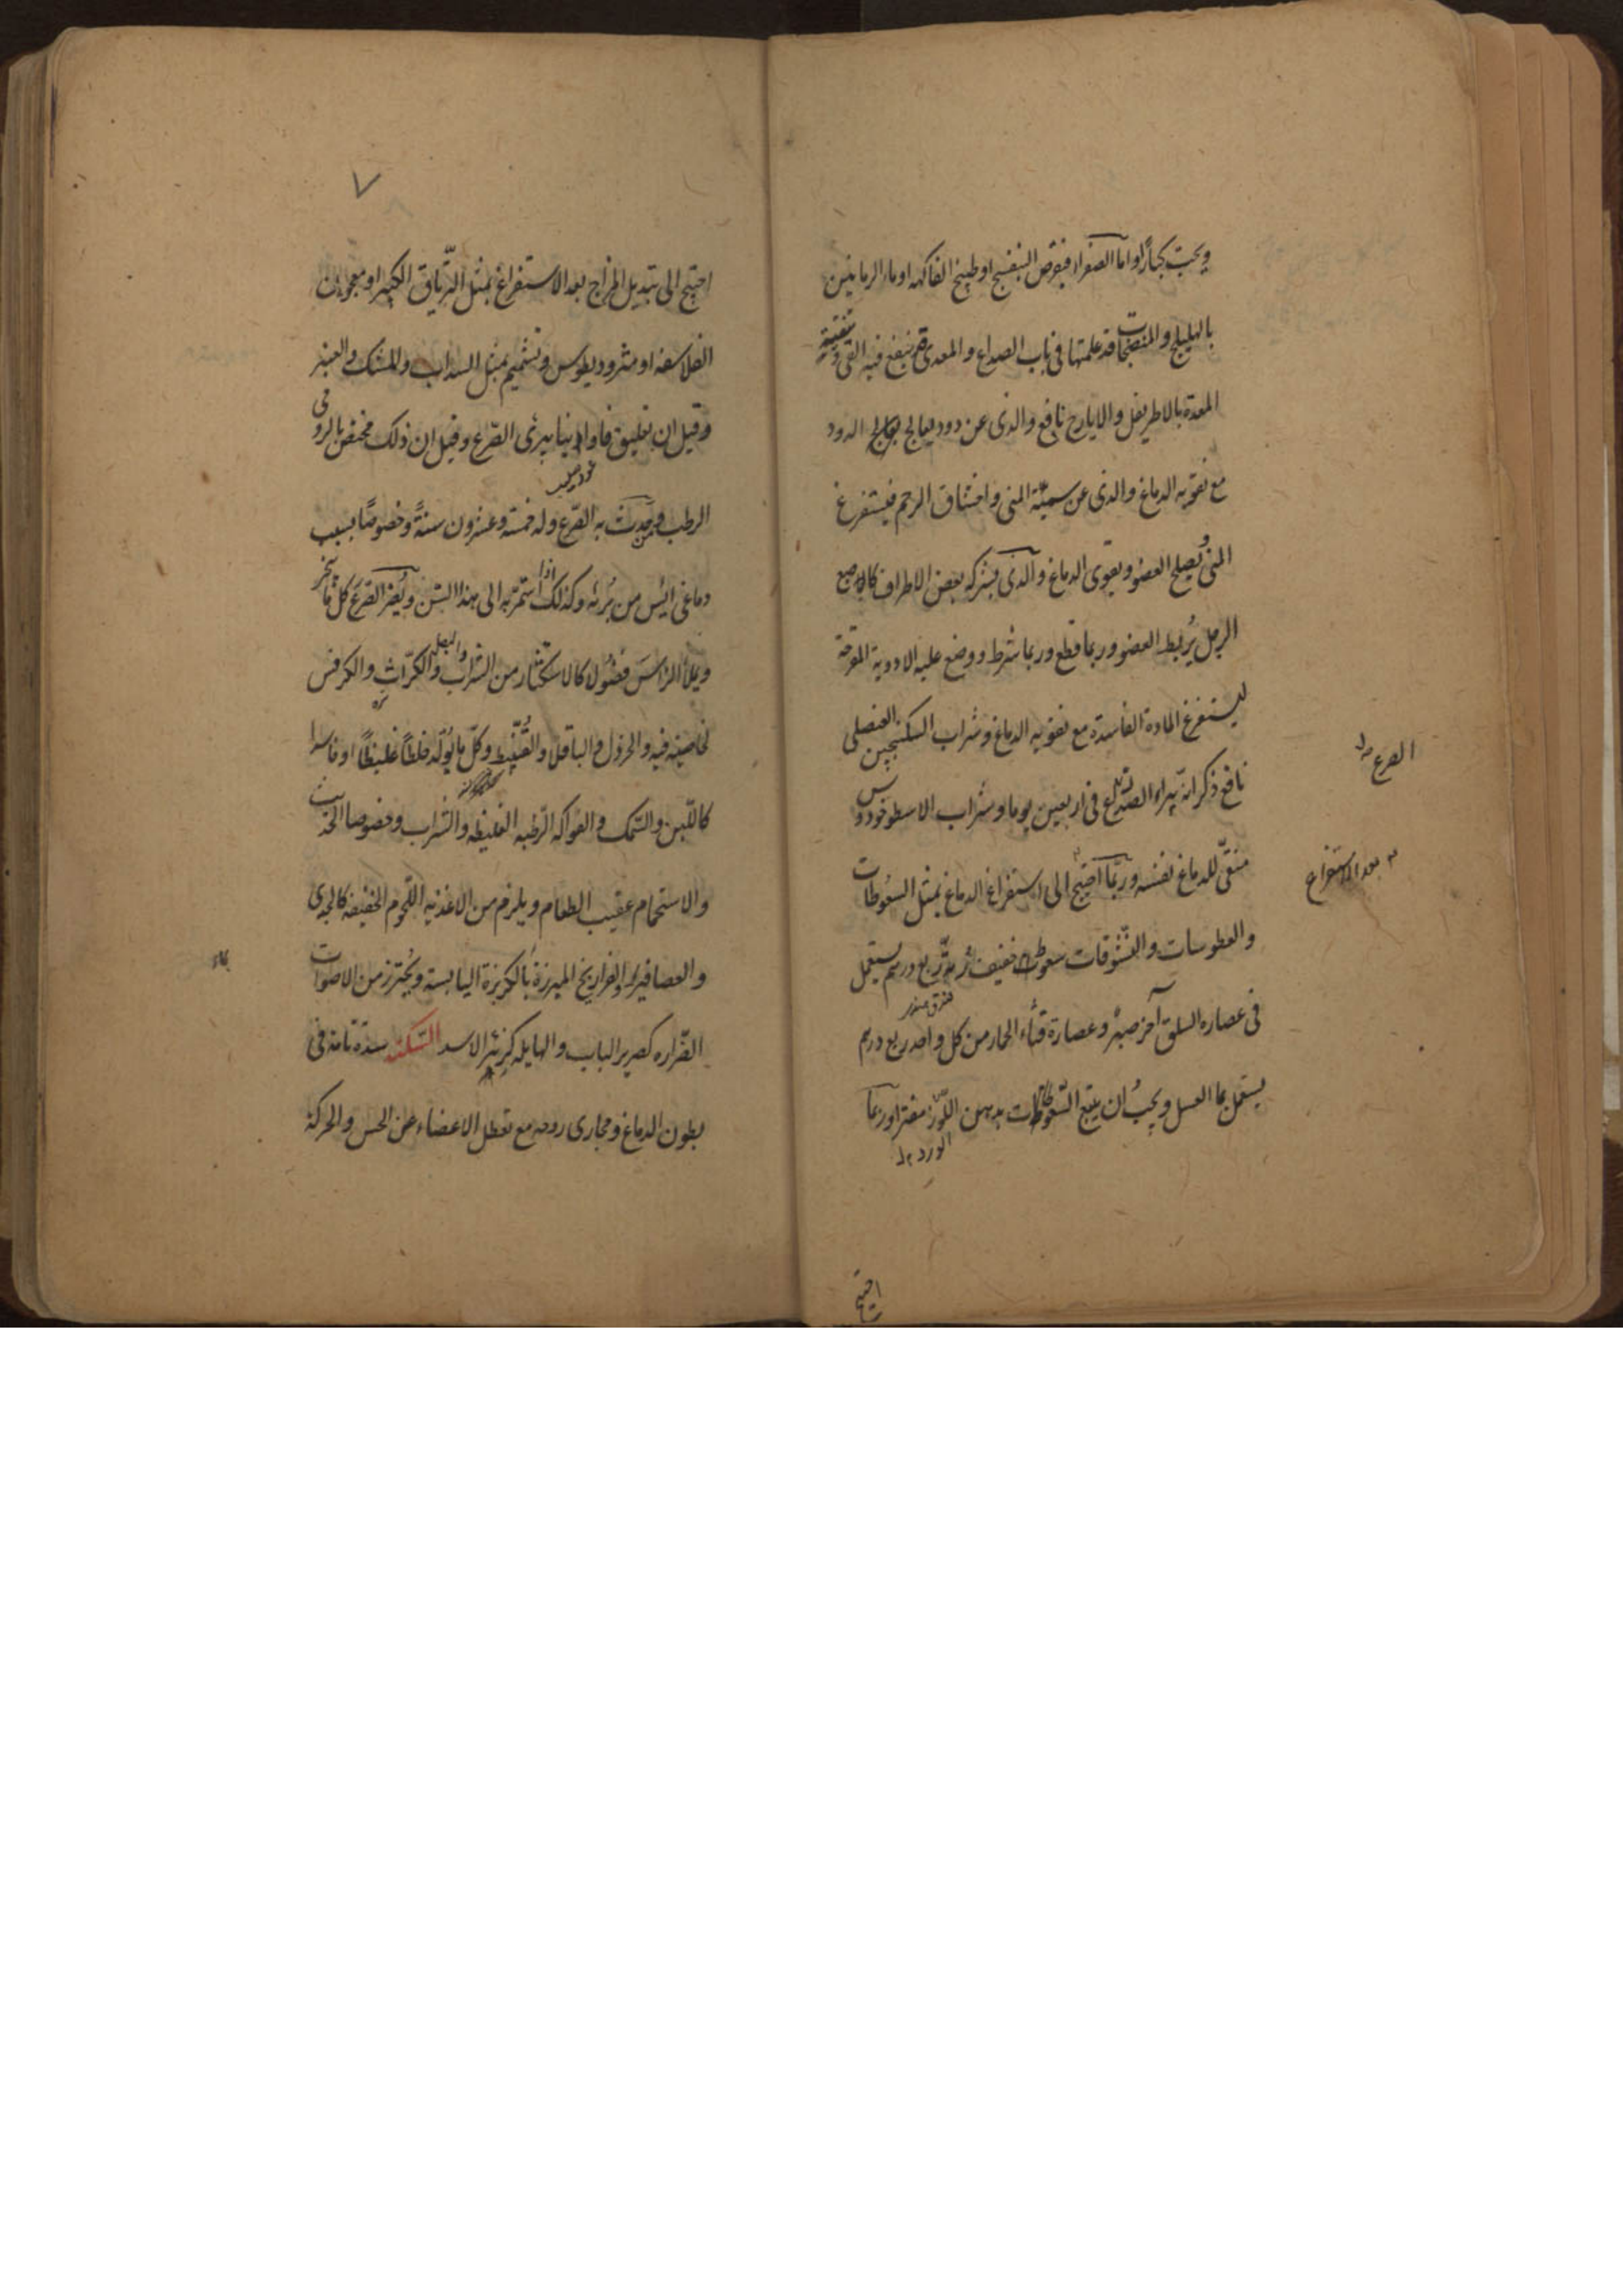 ويحبب كبارًا واما الصفراء فبقرص البنفسج او طبيخ الفاكهه او ماء الرمانين
بالهليلج والمنضجات قد علمتها فى باب الصداع والمعدى ينفع فيه القئ وتنقية
المعدة بالاطريفل والايارج نافع والذى عن دود يعالج بعلاج الدود
مع تقويه الدماغ والذى عن سمية المنى واختناق الرحم فيستفرغ
المنى ويصلح العضو ويقوى الدماغ والذى بشركه بعض الاطراف كالاصبع
الرجل يُربط العضو وربما قطع وربما شرط ووضع عليه الادوية المقرحة
ليستفرغ المادة الفاسدة مع تقويه الدماغ وشراب السكنجبين العنصلى
نافع ذكر انه يبراء الصرع فى اربعين يوما وشراب الاسطوخودوس
منقّى للدماغ نفسه وربّما احتيج الى استفراغ الدماغ بمثل السعُوطات
والعطوسات والنشُوقات سعوط خفيف ربع درهم يستعمل
فى عصاره السلق آخر صبر وعصارة قثاء الحمار من كل واحد ربع درهم
يستعمل بماء العسل ويجبُ ان يتبع السّعوطات بدهن اللوز مفترا وربما
الورد
الصرع
بعد الاستفراغ
احتيج
٧
احتيج الى تبديل المزاج بعد الاستفراغ بمثل الترياق الكبير او معجون
الفلاسفه او مثروديطوس وتشميم بمثل السداب والمسك والعنبر
وقيل ان تعليق فاوانيا يبرئ الصرع وقيل ان ذلك مختص بالرومى
عود صليب
الرطب ومن حدث به الصرع وله خمسة وعشرون سنةً وخصوصًا بسبب
دماغى ايُس من بُرئه وكذلك اذا استمرّ به الى هذا السّن ويُضر الصرع كل ما يبخر
ويملأ الراسَ فضُولا كالاستكثار من الشراب والبصل والكرّاث والكرفس
لخاصيته فيه والخردل والباقلا والقُنّبيط وكلّ ما يُولّد خلطًا غليظًا او فاسدا
كاللّبن والسّمك والفواكه الرّطبه الغليظه والشراب وخصوصا الحديث
والاستحمام عقيب الطعام ويلزم من الاغذيه اللّحُوم الخفيفه كالجدى
والعصافير والفراريخ المبزرة بالكزبرة اليابسة ويُحترز من الاصوات
الصّراره كصرير الباب والهايله كزئير الاسد السّكته سدة تامة فى
بطون الدماغ ومجارى روحه مع تعطل الاعضاء عن الحس والحركة